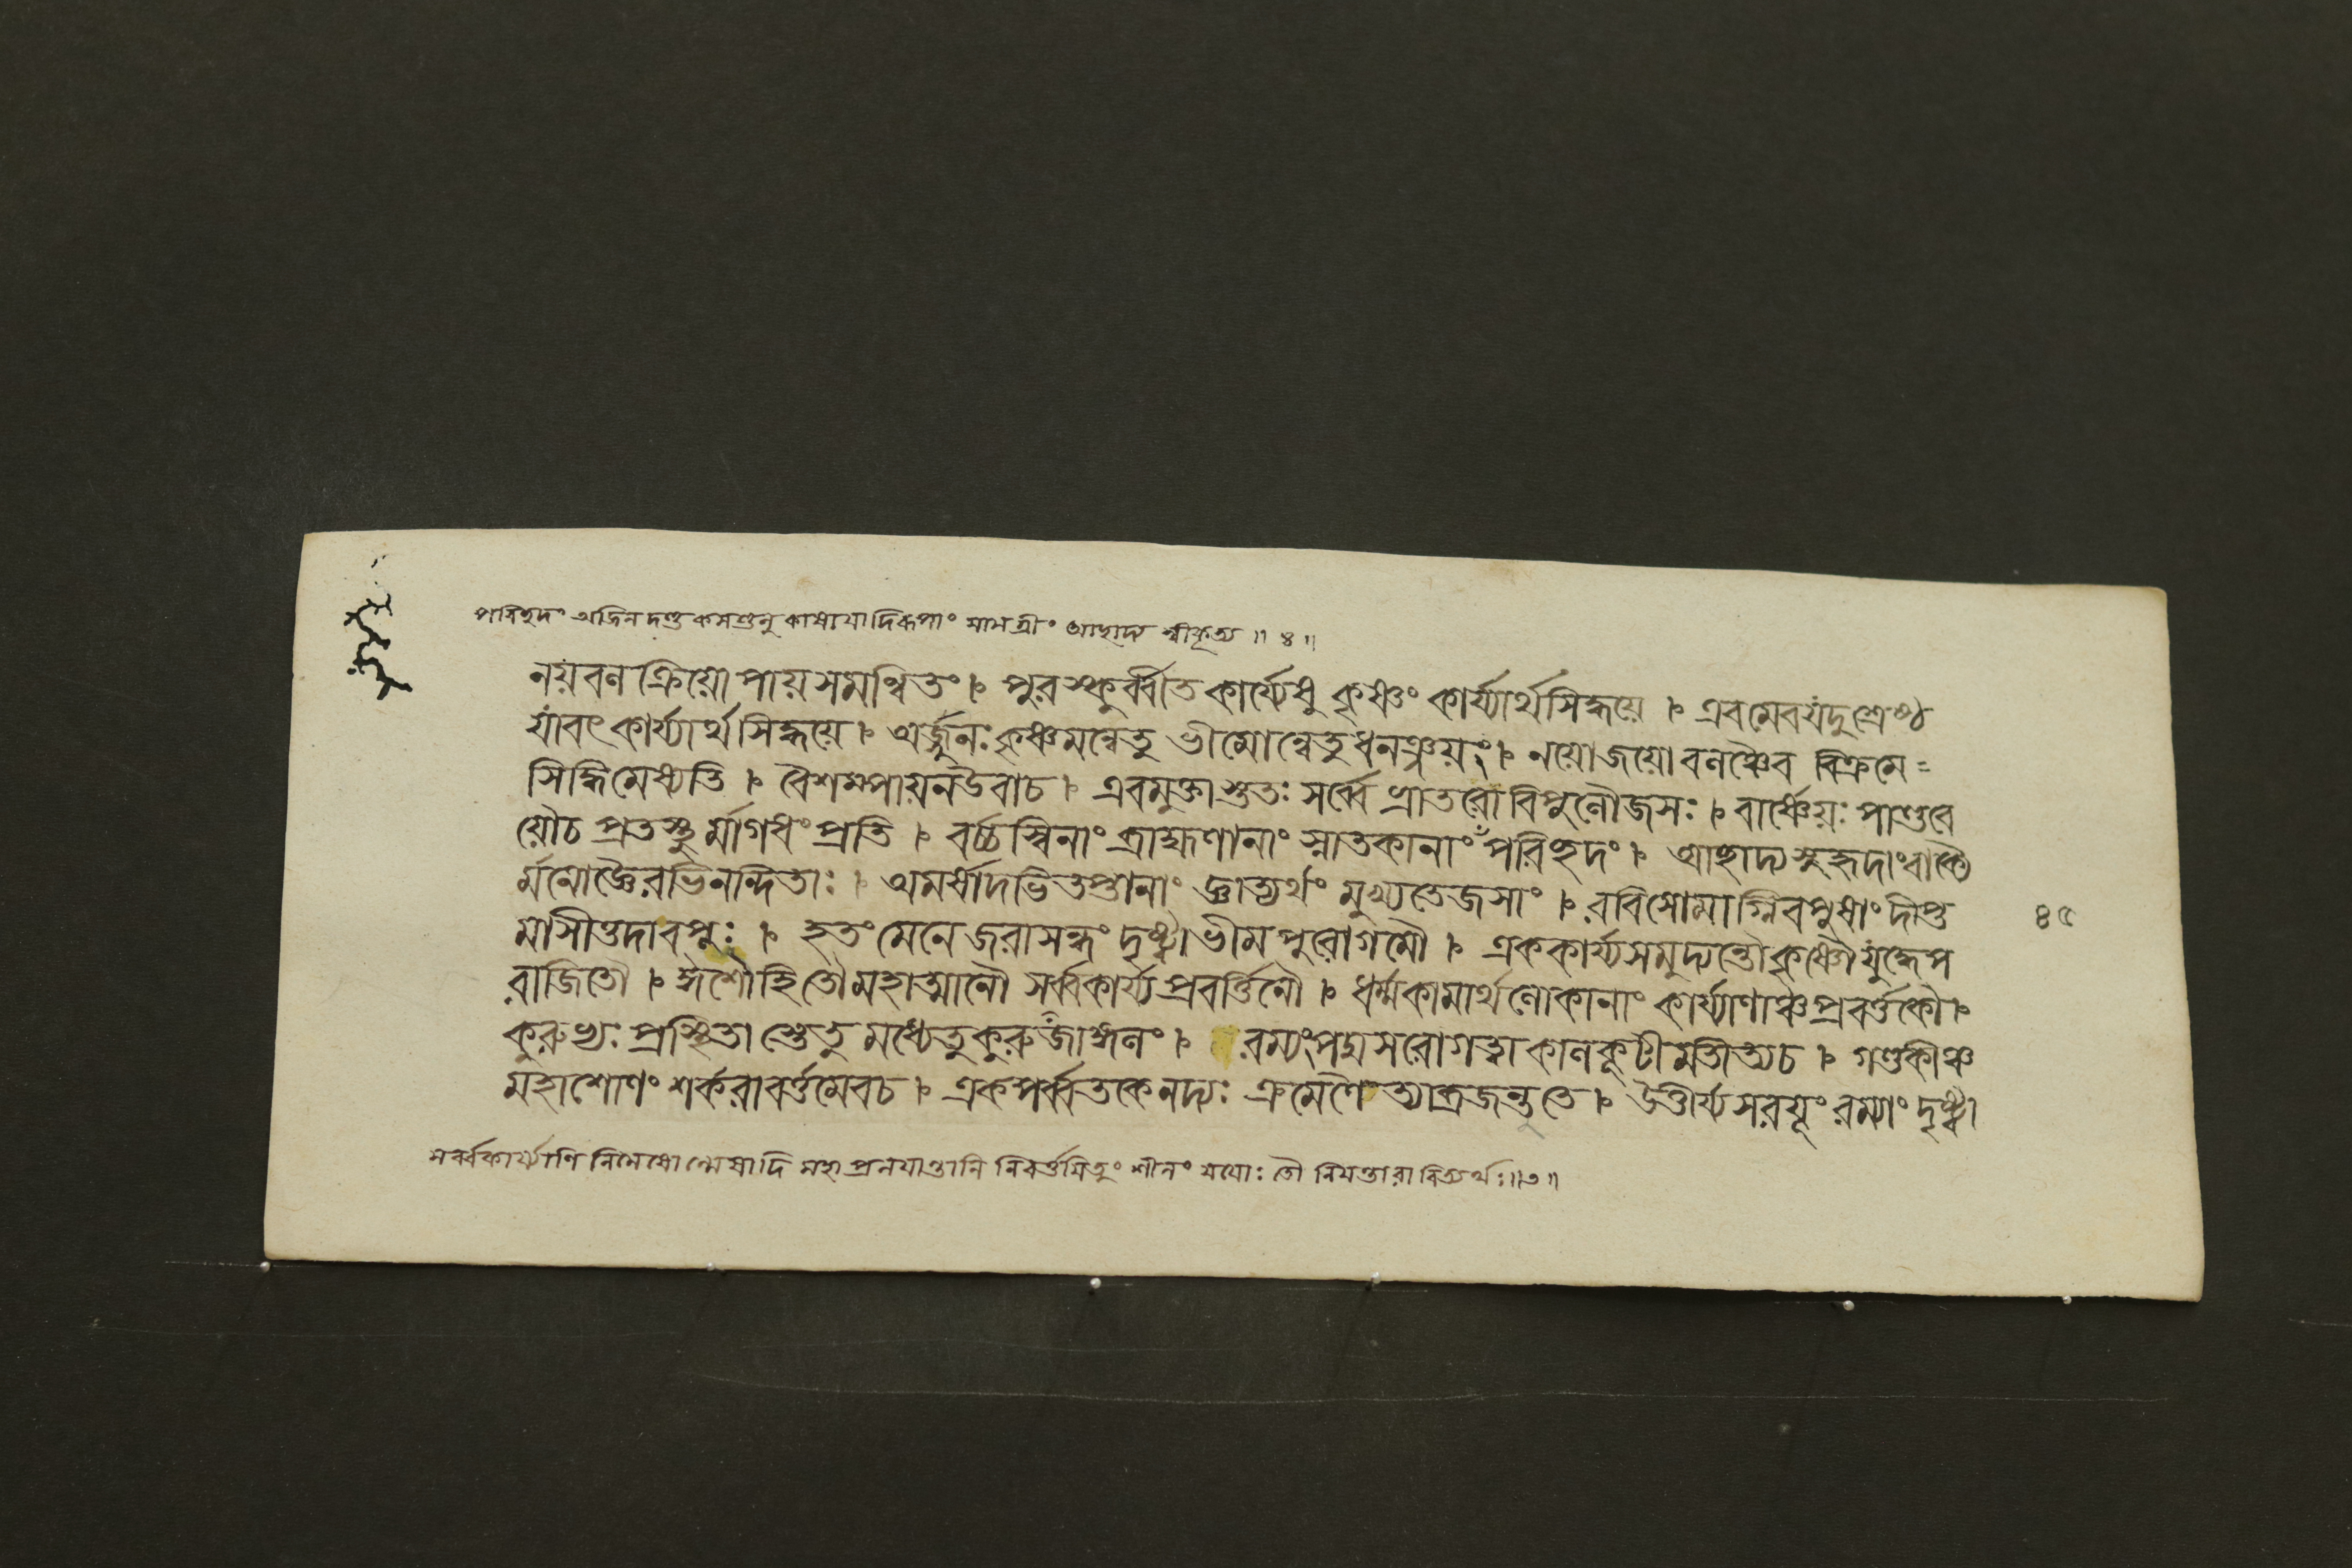 পরিছদং অজিনদণ্ডকমণ্ডলুকাষায়াদিরূপাং সামগ্রীং আছাদ্য স্বীকৃত্য ॥ ৪ ॥
নয়বলক্রিয়োপায়সমন্বিতং । পুরস্কুর্ব্বীত কার্য্যেষু কৃষ্ণং কার্য্যার্থসিদ্ধয়ে । এবমেবযদুশ্রেষ্ঠ
যাবৎ কার্য্যার্থসিদ্ধয়ে । অর্জ্জুনঃ কৃষ্ণমন্বেতু ভীমোন্বেতুধনঞ্জয়ং । নয়োজয়োবলঞ্চৈব বিক্রমে =
সিদ্ধিমেষ্যতি । বৈশম্পায়নউবাচ । এবমুক্তাস্ততঃ সর্ব্বে ভ্রাতরোবিপুলৌজসঃ । বার্ষ্ণেয়ঃ পাণ্ডবে
য়ৌচ প্রতস্থুর্ম্মাগধং প্রতি । বর্চ্চস্বিনাং ব্রাহ্মণানাং স্নাতকানাং পরিছদং । আছাদ্য সুহৃদাংবাক্যৈ
র্মনোজ্ঞৈরভিনন্দিতাঃ । অমর্ষাদভিতপ্তানাং জ্ঞাত্যর্থং মুখ্যতেজসাং । রবিসোমাগ্নিবপুষাং দীপ্ত
মাসীত্তদাবপুঃ । হতং মেনে জরাসন্ধং দৃষ্ট্বাভীমপুরোগমৌ । এককার্য্যসমুদ্যন্তৌকৃষ্ণৌযুদ্ধেপ
রাজিতৌ । ঈশৌহিতৌমহাত্মানৌ সর্ব্বকার্য্যপ্রবর্ত্তিনৌ । ধর্ম্মকামার্থলোকানাং কার্য্যাণাঞ্চপ্রবর্ত্তকৌ ।
৪৫
কুরুভ্যঃ প্রস্থিতাস্তেতু মধ্যেতুকুরুজাঙ্গলং । রম্যংপদ্মসরোগত্বাকালকূটমতীত্যচ । গণ্ডকীঞ্চ
মহাশোণং শর্করাবর্ত্তমেবচ । একপর্ব্বতকেনদ্যঃ ক্রমেণৈত্যাব্রজন্তুতে । উত্তীর্য্যসরযূং রম্যাং দৃষ্ট্বা
সর্ব্বকার্য্যাণি নিমেষোন্মেষাদি মহাপ্রলয়ান্তানি নিবর্ত্তয়িতুং শীলং যযোঃ তৌ নিয়ন্তারাবিত্যর্থঃ ॥৩॥